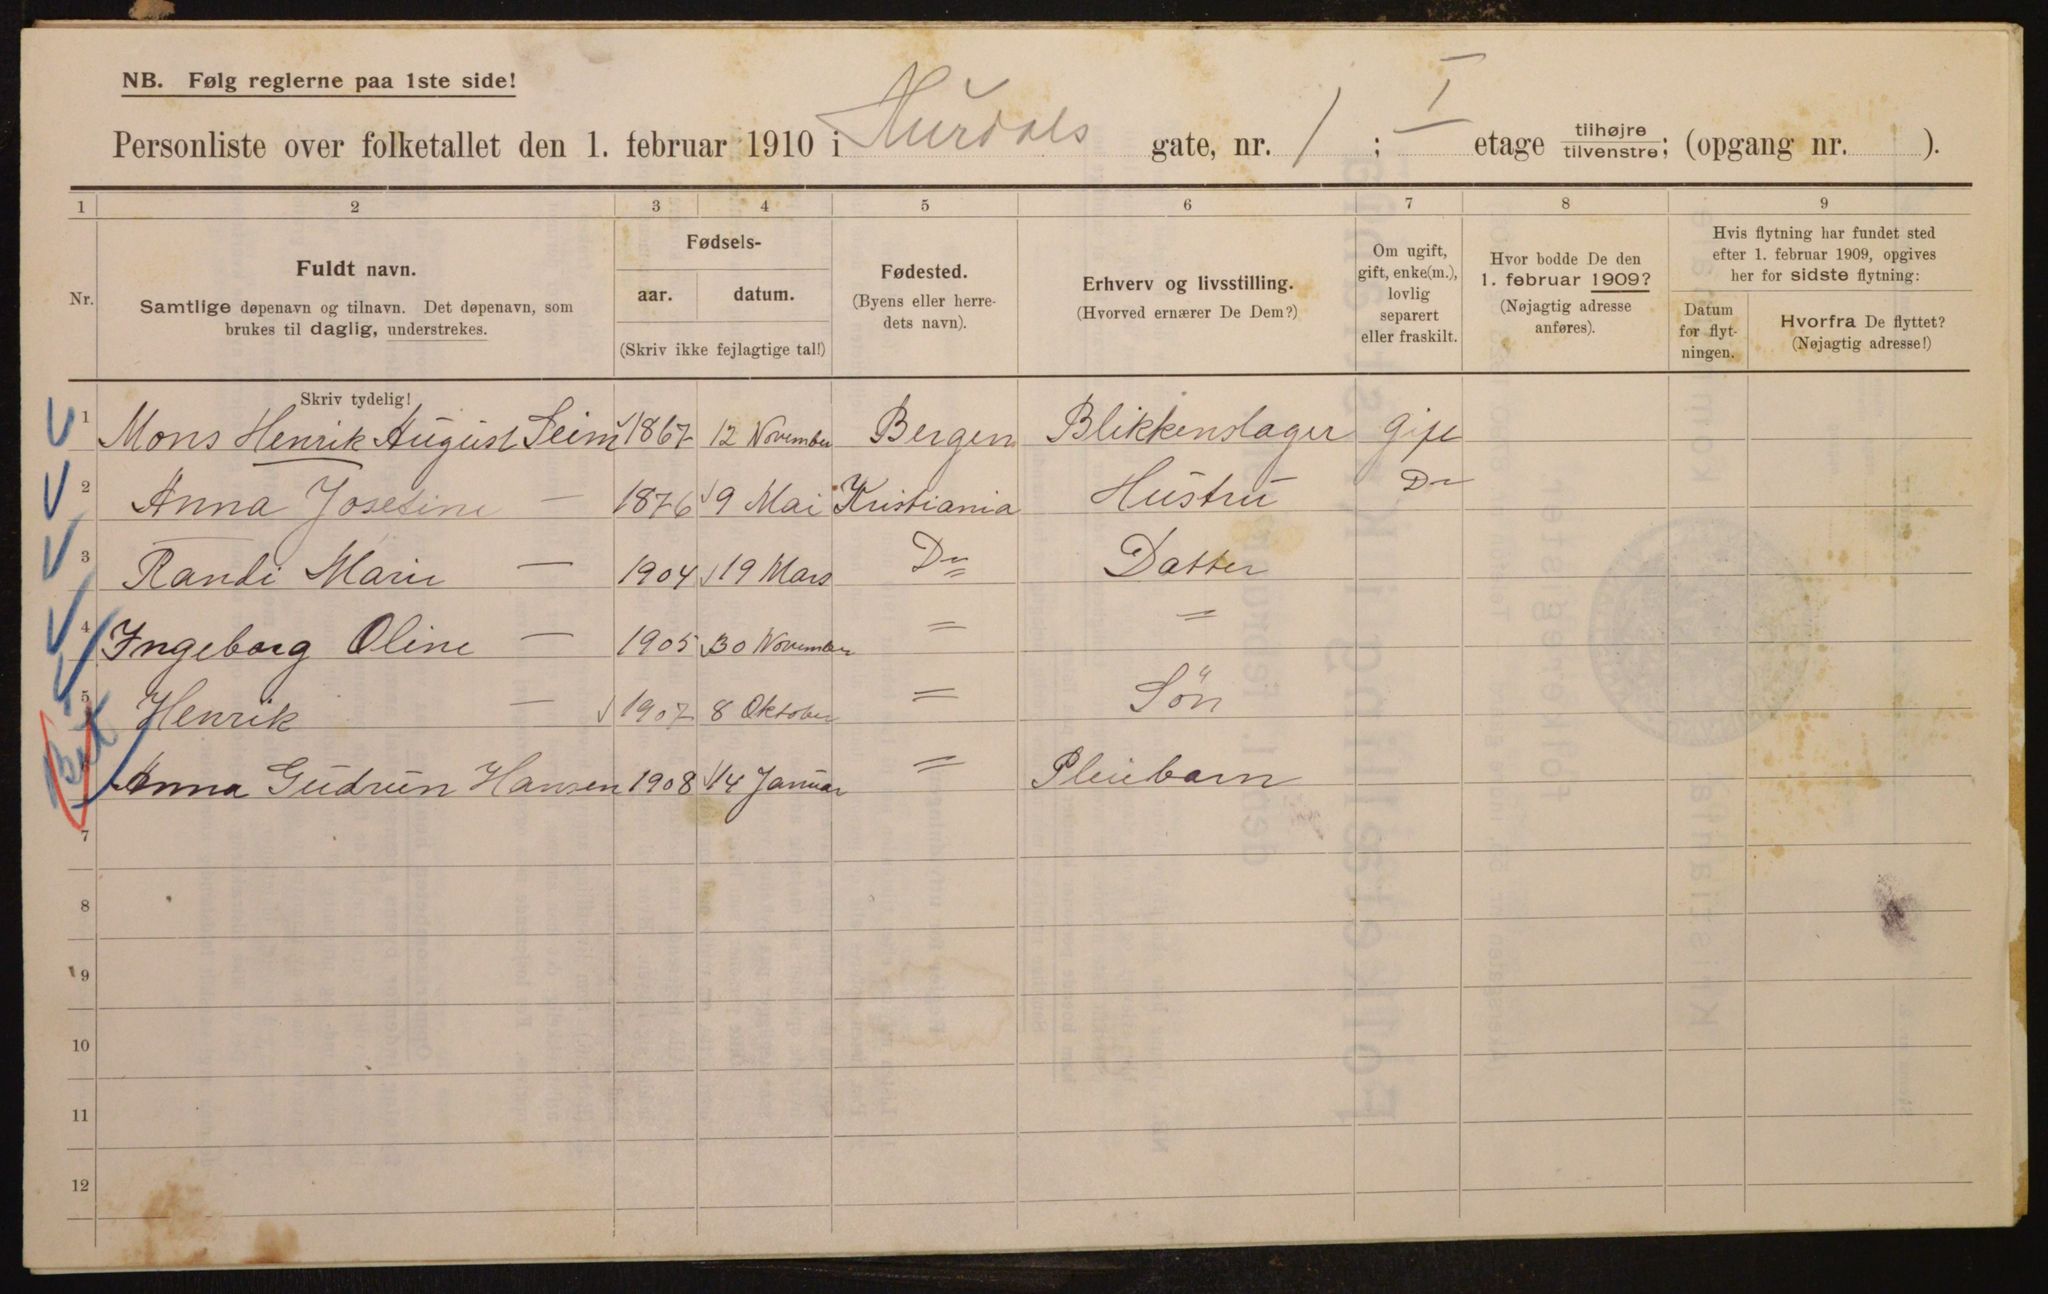 NB. Følg reglerne paa 1ste side!
Personliste over folketallet den 1. februar 1910 i Hurdals gate, nr. 1 ; I etage tilhøjre tilvenstre; (opgang nr. ).
1 2 3 4 5 6 7 8 9
Nr.
Fuldt navn.
Samtlige døpenavn og tilnavn. Det døpenavn, som
brukes til daglig, understrekes.
Fødsels-
aar. datum.
(Skriv ikke fejlagtige tal!)
Fødested.
(Byens eller herre-
dets navn).
Erhverv og livsstilling.
(Hvorved ernærer De Dem?)
Om ugift,
gift, enke(m.),
lovlig
separert
eller fraskilt.
Hvor bodde De den
1. februar 1909?
(Nøjagtig adresse
anføres).
Hvis flytning har fundet sted
efter 1. februar 1909, opgives
her for sidste flytning:
Datum
for flyt-
ningen.
Hvorfra De flyttet?
(Nøjagtig adresse!)
Skriv tydelig!
1 Mons Henrik August Seim 1867 12 November Bergen Blikkenslager gift
2 Anna Josefine — 1876 9 Mai Kristiania Hustru Do
3 Randi Marie — 1904 19 Mars Do Datter
4 Ingeborg Oline — 1905 30 November = =
5 Henrik — 1907 8 Oktober = Søn
6 Anna Gudrun Hansen 1908 14 Januar = Pleiebarn
7
8
9
10
11
12